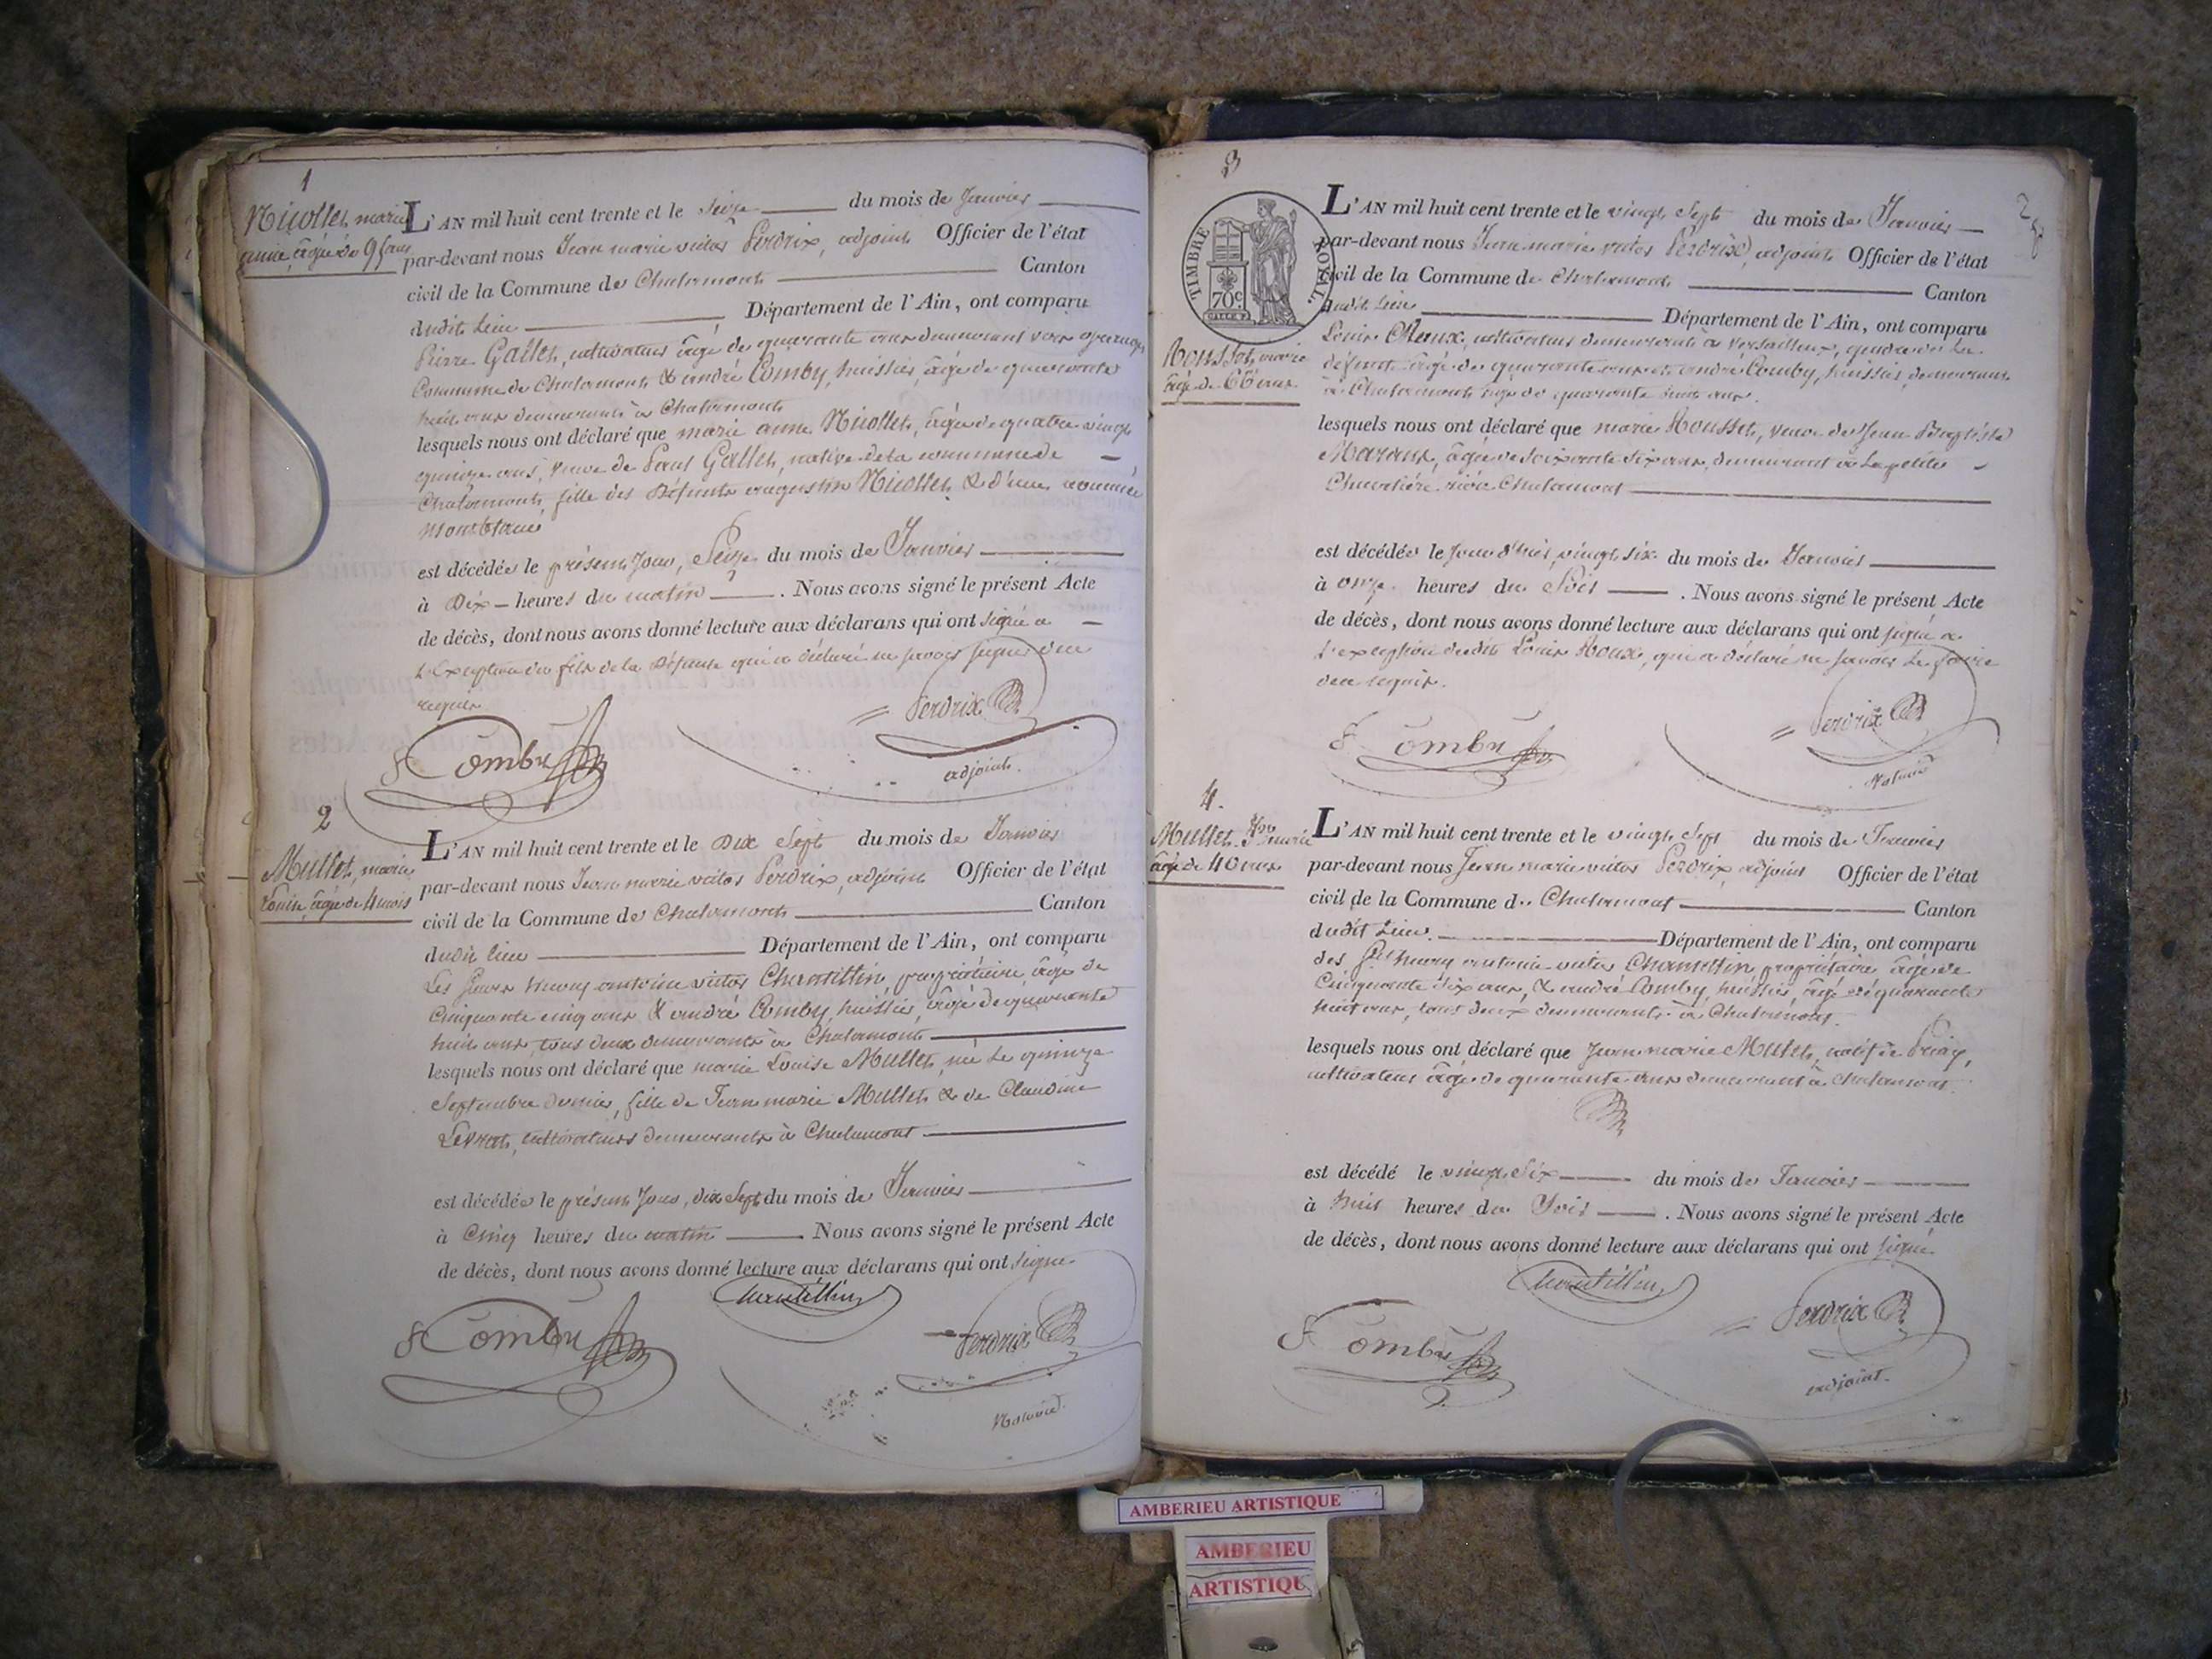 1
Nicollet, marie
anne, âgée de 95 ans
L'AN mil huit cent trente et le Seize du mois de Janvier
par-devant nous Jean marie victor Perdrix, adjoint Officier de l'état
civil de la Commune de Chalamont Canton
dudit lieu Département de l'Ain, ont comparu
Pierre Gallet, cultivateur âgé de quarante ans demeurant
Commune de Chalamont & andré Comby, huissier, âgé de quarante
huit ans demeurants à Chalamont
lesquels nous ont déclaré que marie anne Nicollet, âgée de quatre vingt
quinze ans, veuve de Paul Gallet, native de la commune de
Chalamont, fille des défunts augustin Nicollet & d'une nommée
est décédée le présent jour, Seize du mois de Janvier
à Dix heures du matin. Nous avons signé le présent Acte
de décès, dont nous avons donné lecture aux déclarans qui ont signé a
L'exception du fils de la défunte qui a déclaré ne savoir signer de ce
requis
Comby
Perdrix
adjoint.
2
Mullet, marie
Louise, âgée de 4 mois
L'AN mil huit cent trente et le Dix Sept du mois de Janvier
par-devant nous Jean marie victor Perdrix, adjoint Officier de l'état
civil de la Commune de Chalamont Canton
dudit lieu Département de l'Ain, ont comparu
Les Sieurs antoine victor Chantillin, propriétaire, âgé de
Cinquante cinq ans & andré Comby, huissier, âgé de quarante
huit ans, tous deux demeurants à Chalamont
lesquels nous ont déclaré que marie Louise Mullet, née le quinze
Septembre dernier, fille de Jean marie Mullet & de Claudine
Levrat, cultivateurs demeurants à Chalamont
est décédée le présent Jour, dix Sept du mois de Janvier
à Cinq heures du matin. Nous avons signé le présent Acte
de décès, dont nous avons donné lecture aux déclarans qui ont signé
Chantillin
Comby
Perdrix
3
2
TIMBRE ROYAL.
70c
Rousset, marie
âgé de 66 ans
L'AN mil huit cent trente et le vingt Sept du mois de Janvier
par-devant nous Jean marie victor Perdrix, adjoint Officier de l'état
civil de la Commune de Chalamont Canton
dudit lieu Département de l'Ain, ont comparu
Louis Roux, cultivateur demeurant à Versailleux, gendre de la
défunte âgé de quarante ans et andré Comby, huissier, demeurant
à Chalamont âgé de quarante huit ans.
lesquels nous ont déclaré que marie Rousset, veuve de Jean Baptiste
âgée de soixante six ans, demeurant à la petite
Chalamont
est décédée le jour d'hier, vingt six du mois de Janvier
à onze heures du Soir. Nous avons signé le présent Acte
de décès, dont nous avons donné lecture aux déclarans qui ont signé a
L'exception dudit Louis Roux, qui a déclaré ne savoir le faire
de ce requis.
Comby
Perdrix
4.
Mullet, Jean marie
âgé de 40 ans
L'AN mil huit cent trente et le vingt Sept du mois de Janvier
par-devant nous Jean marie victor Perdrix, adjoint Officier de l'état
civil de la Commune de Chalamont Canton
dudit lieu. Département de l'Ain, ont comparu
des antoine victor Chantillin, propriétaire âgé de
Cinquante six ans, & andré Comby, huissier, âgé de quarante
huit ans, tous deux demeurants à Chalamont.
lesquels nous ont déclaré que Jean marie Mullet, natif de Priay,
cultivateur âgé de quarante ans demeurant à Chalamont
est décédé le vingt Six du mois de Janvier
à huit heures du Soir. Nous avons signé le présent Acte
de décès, dont nous avons donné lecture aux déclarans qui ont signé
Chantillin
Comby
Perdrix
adjoint.
AMBERIEU ARTISTIQUE
AMBERIEU
ARTISTIQUE